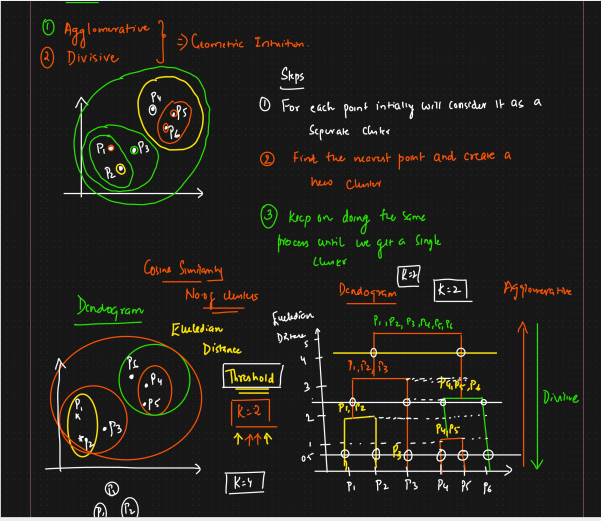 ① Agglomerative
② Divisive
⇒ Geometric Intuition.
P4
P5
P6
P1
P3
P2
Steps
① For each point initially will consider it as a
Seperate cluster
② Find the nearest point and create a
new cluster
③ Keep on doing the same
process until we get a single
cluster
Cosine Similarity
No. of clusters
Dendogram
Euclidian
Distance
Threshold
K=2
K=4
P4
P5
P1
P2
P3
P1
P2
Dendogram
K=2
Agglomerative
Euclidian
Distance
P1, P2, P3, P4, P5, P6
P1, P2, P3
P4, P5, P6
P1, P2
P4, P5
P3
5
4
3
2
1
0.5
P1 P2 P3 P4 P5 P6
Divisive